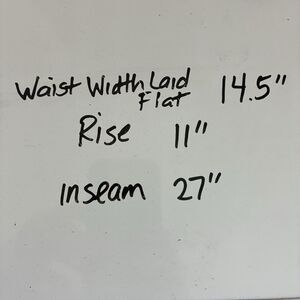 Waist Width Laid Flat 14.5"
Rise 11"
Inseam 27"